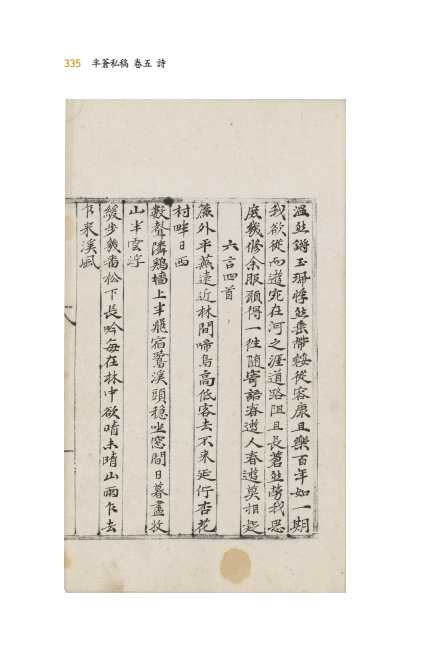 335 半蒼私稿 卷五 詩
溫然鏘玉珮悸然垂帶綏從容康且樂百年如一期
我欲從而遊宛在河之涯道路阻且長蒼然勞我思
庶幾修余服願得一往隨寄語春遊人春遊莫相疑
六言四首
簾外平蕪遠近林間啼鳥高低客去不來延佇杏花
村畔日西
數聲隣鷄墻上半飛宿鷺溪頭穩坐窓間日暮盡收
山半雲浮
緩步幾番松下長吟每在林中欲晴未晴山雨乍去
乍來溪風